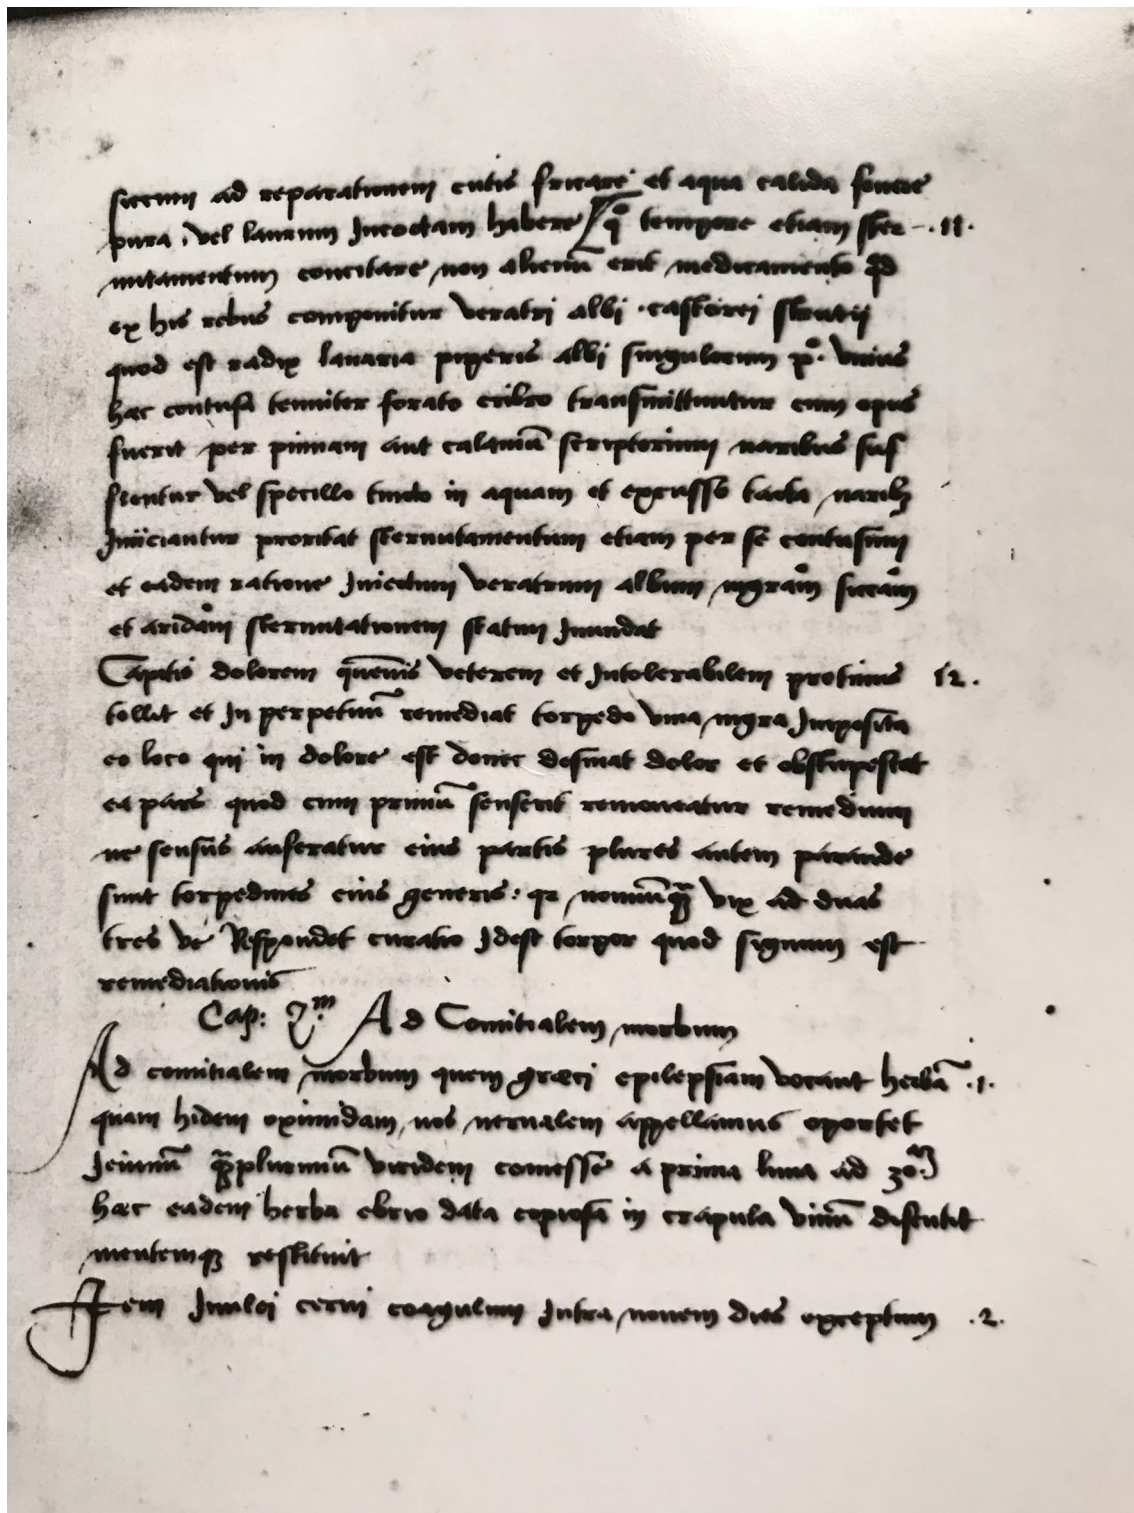 siccum ad reparationem cutis fricare et aqua calida fovere
pura, vel laurum Incoctam habere qº tempore etiam ster- .11.
nutamentum concitare non alienū erit medicamento qd
ex his rebus componitur veratri albi . castorei strutii
quod est radix lanaria piperis albi singulorum pº. unius
hæc contusa tenuiter forato cribro transmittuntur cum opus
fuerit per pinnam aut calamū scriptorium naribus suf
flentur vel specillo tincto in aquam et excusso tacta naribꝫ
Iniiciantur proritat sternutamentum etiam per se contusum
et eadem ratione Iniectum veratrum album
et sternutationem statim
Capitis dolorem quēvis veterem et Intolerabilem protinus 12.
tollit et In perpetuū remediat torpedo viva nigra Imposita
eo loco qui in dolore est donec desinat dolor et obstupescat
ea pars quod cum primū senserit removeatur remedium
ne sensus auferatur eius partis plures autem parande
sunt torpedines eius generis: qꝛ nonnūqꝫ vix ad duas
tres ve Respondet curatio Idest torpor quod signum est
remediationis
Cap: 2.m Ad Comitialem morbum
Ad comitialem morbum quem græci epilepsiam vocant herbā .1.
quam Iidem oximidam, nos nervalem appellamus oportet
Ieiunū qꝫplurimū viridem comesse a prima luna ad 30.am
hæc eadem herba ebrio data copiosa in crapula vinū discutit
mentemqꝫ restituit
Item Inulei cervi coagulum Intra novem dies exceptum .2.